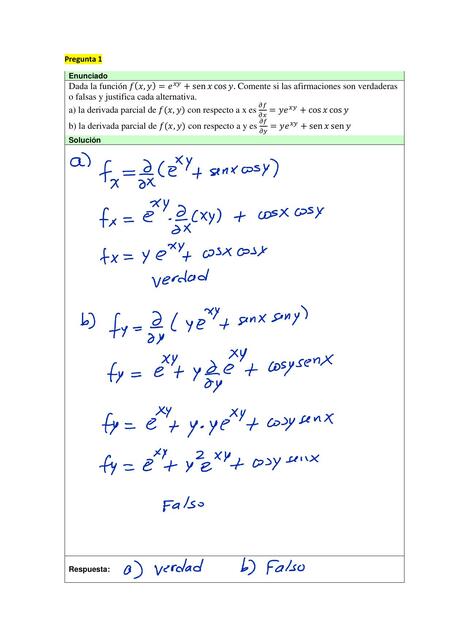 Pregunta 1
Enunciado
Dada la función f(x, y) = e^{xy} + sen x cos y. Comente si las afirmaciones son verdaderas
o falsas y justifica cada alternativa.
a) la derivada parcial de f(x, y) con respecto a x es ∂f/∂x = ye^{xy} + cos x cos y
b) la derivada parcial de f(x, y) con respecto a y es ∂f/∂y = ye^{xy} + sen x sen y
Solución
a) fx = ∂/∂x (e^{xy} + senx cosy)
fx = e^{xy} · ∂/∂x (xy) + cosx cosy
fx = y e^{xy} + cosx cosx
verdad
b) fy = ∂/∂y ( ye^{xy} + senx seny)
fy = e^{xy} + y ∂/∂y e^{xy} + cosy senx
fy = e^{xy} + y · ye^{xy} + cosy senx
fy = e^{xy} + y^2 e^{xy} + cosy senx
Falso
Respuesta: a) verdad b) Falso